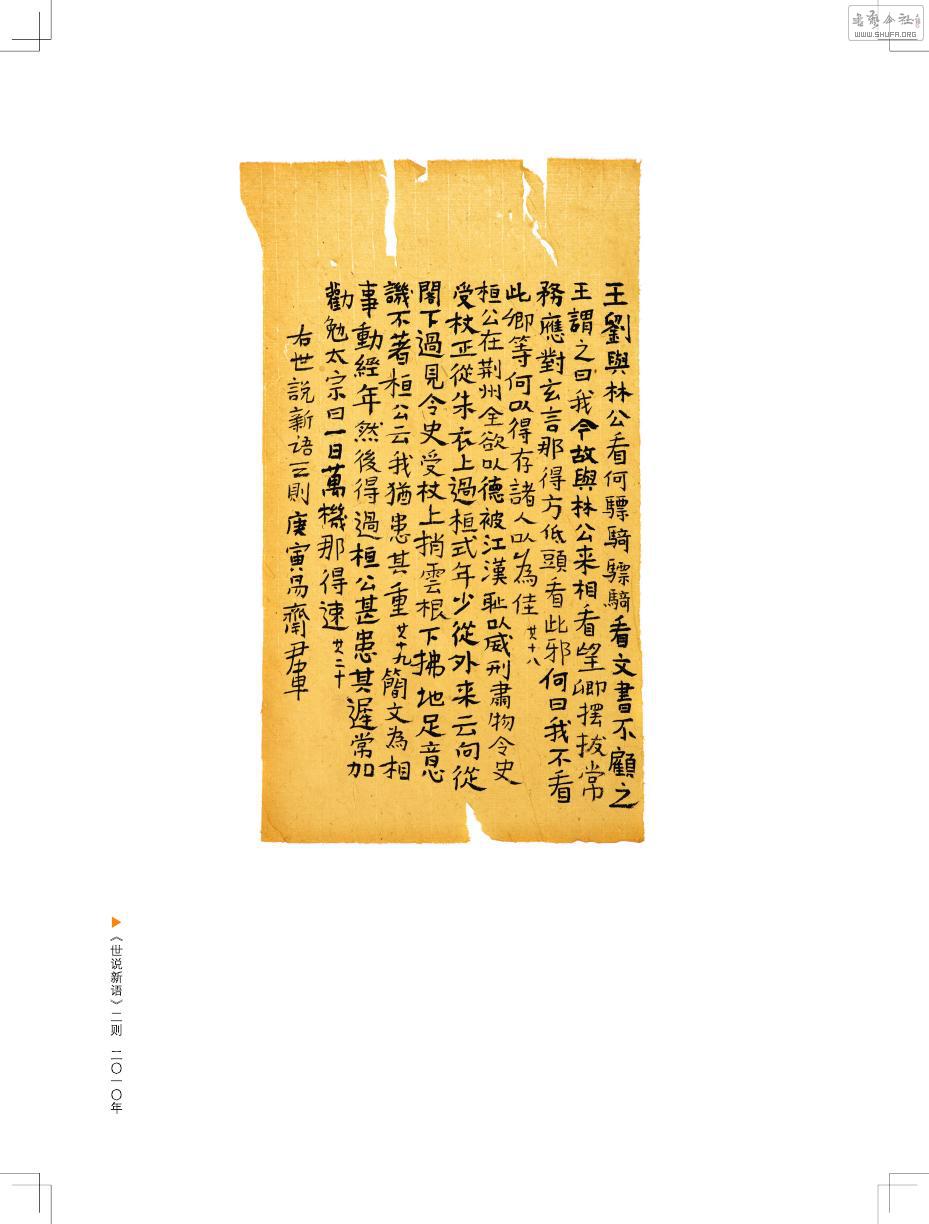 王劉與林公看何驃騎驃騎看文書不顧之
王謂之曰我今故與林公来相看望卿擺拔常
務應對玄言那得方低頭看此邪何曰我不看
此卿等何以得存諸人以為佳 其十八
桓公在荆州全欲以德被江漢恥以威刑肅物令史
受杖正從朱衣上過桓式年少從外来云向從
閣下過見令史受杖上捎雲根下拂地足意
譏不著桓公云我猶患其重 其十九 簡文為相
事動經年然後得過桓公甚患其遲常加
勸勉太宗曰一日萬機那得速 其二十
右世說新語三則庚寅 齋君車
《世说新语》二则 二〇一〇年
WWW.SHUFA.ORG